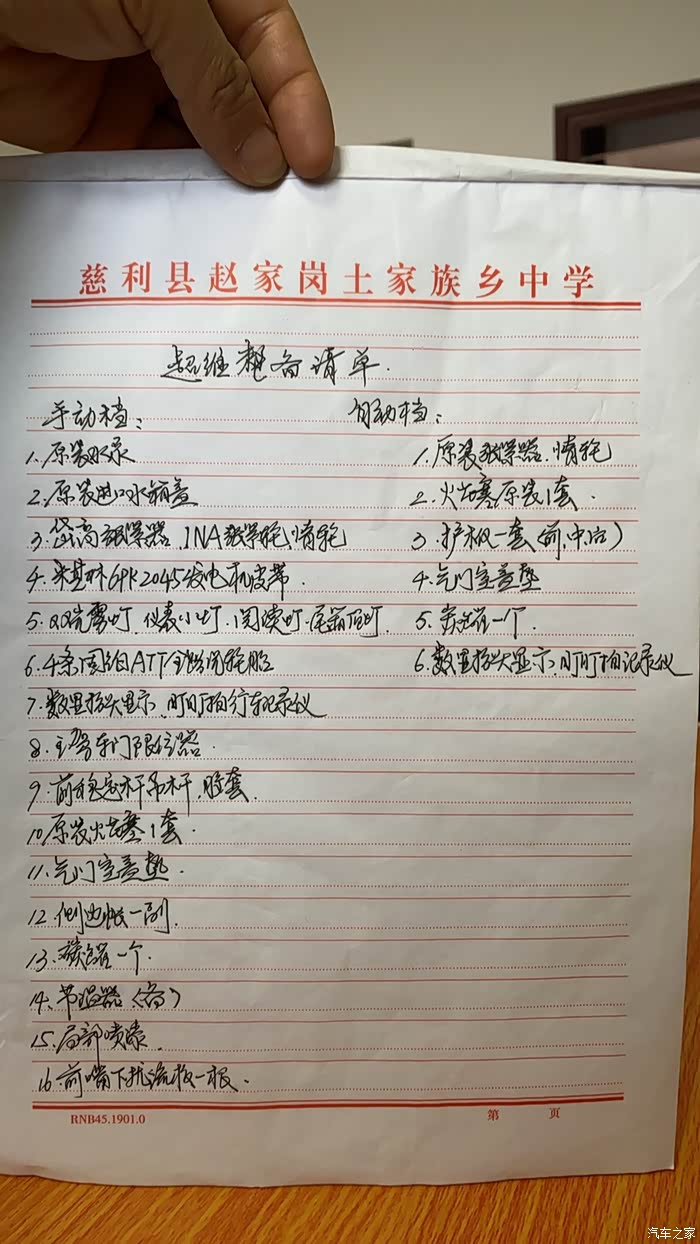 慈利县赵家岗土家族乡中学
超维整备清单.
手动档:
自动档:
1.原装水泵
1.原装张紧器.惰轮
2.原装进口水箱盖
2.火花塞原装1套.
3.岱高张紧器.INA张紧轮,惰轮
3.护板一套(前,中,后)
4.米其林6PK2045发电机皮带.
4.气门室盖垫
5.QQ先雾灯.仪表小灯.阅读灯.尾箱顶灯.
5.一个.
6.4条固铂ATT全路况轮胎
6.数显抬头显示,盯盯拍记录仪
7.数显抬头显示.盯盯拍行车记录仪
8.主驾车门限位器.
9.前稳定杆吊杆,胶套.
10.原装火花塞1套.
11.气门室盖垫.
12.侧边帐一副.
13.碳罐一个.
14.节温器(高)
15.局部喷漆.
16.前嘴下扰流板一根.
RNB45.1901.0
第 页
汽车之家